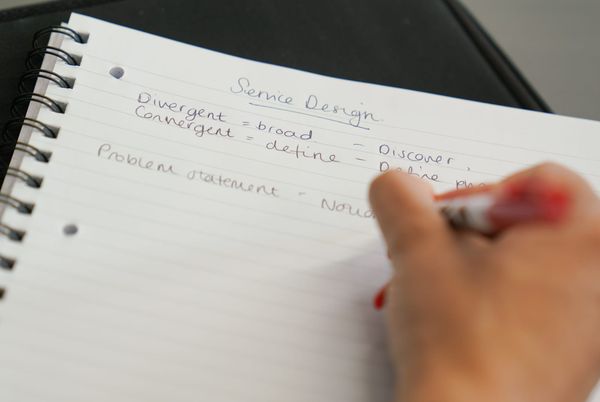 Service Design
Divergent = broad - Discover,
Convergent = define - Define
Problem statement -